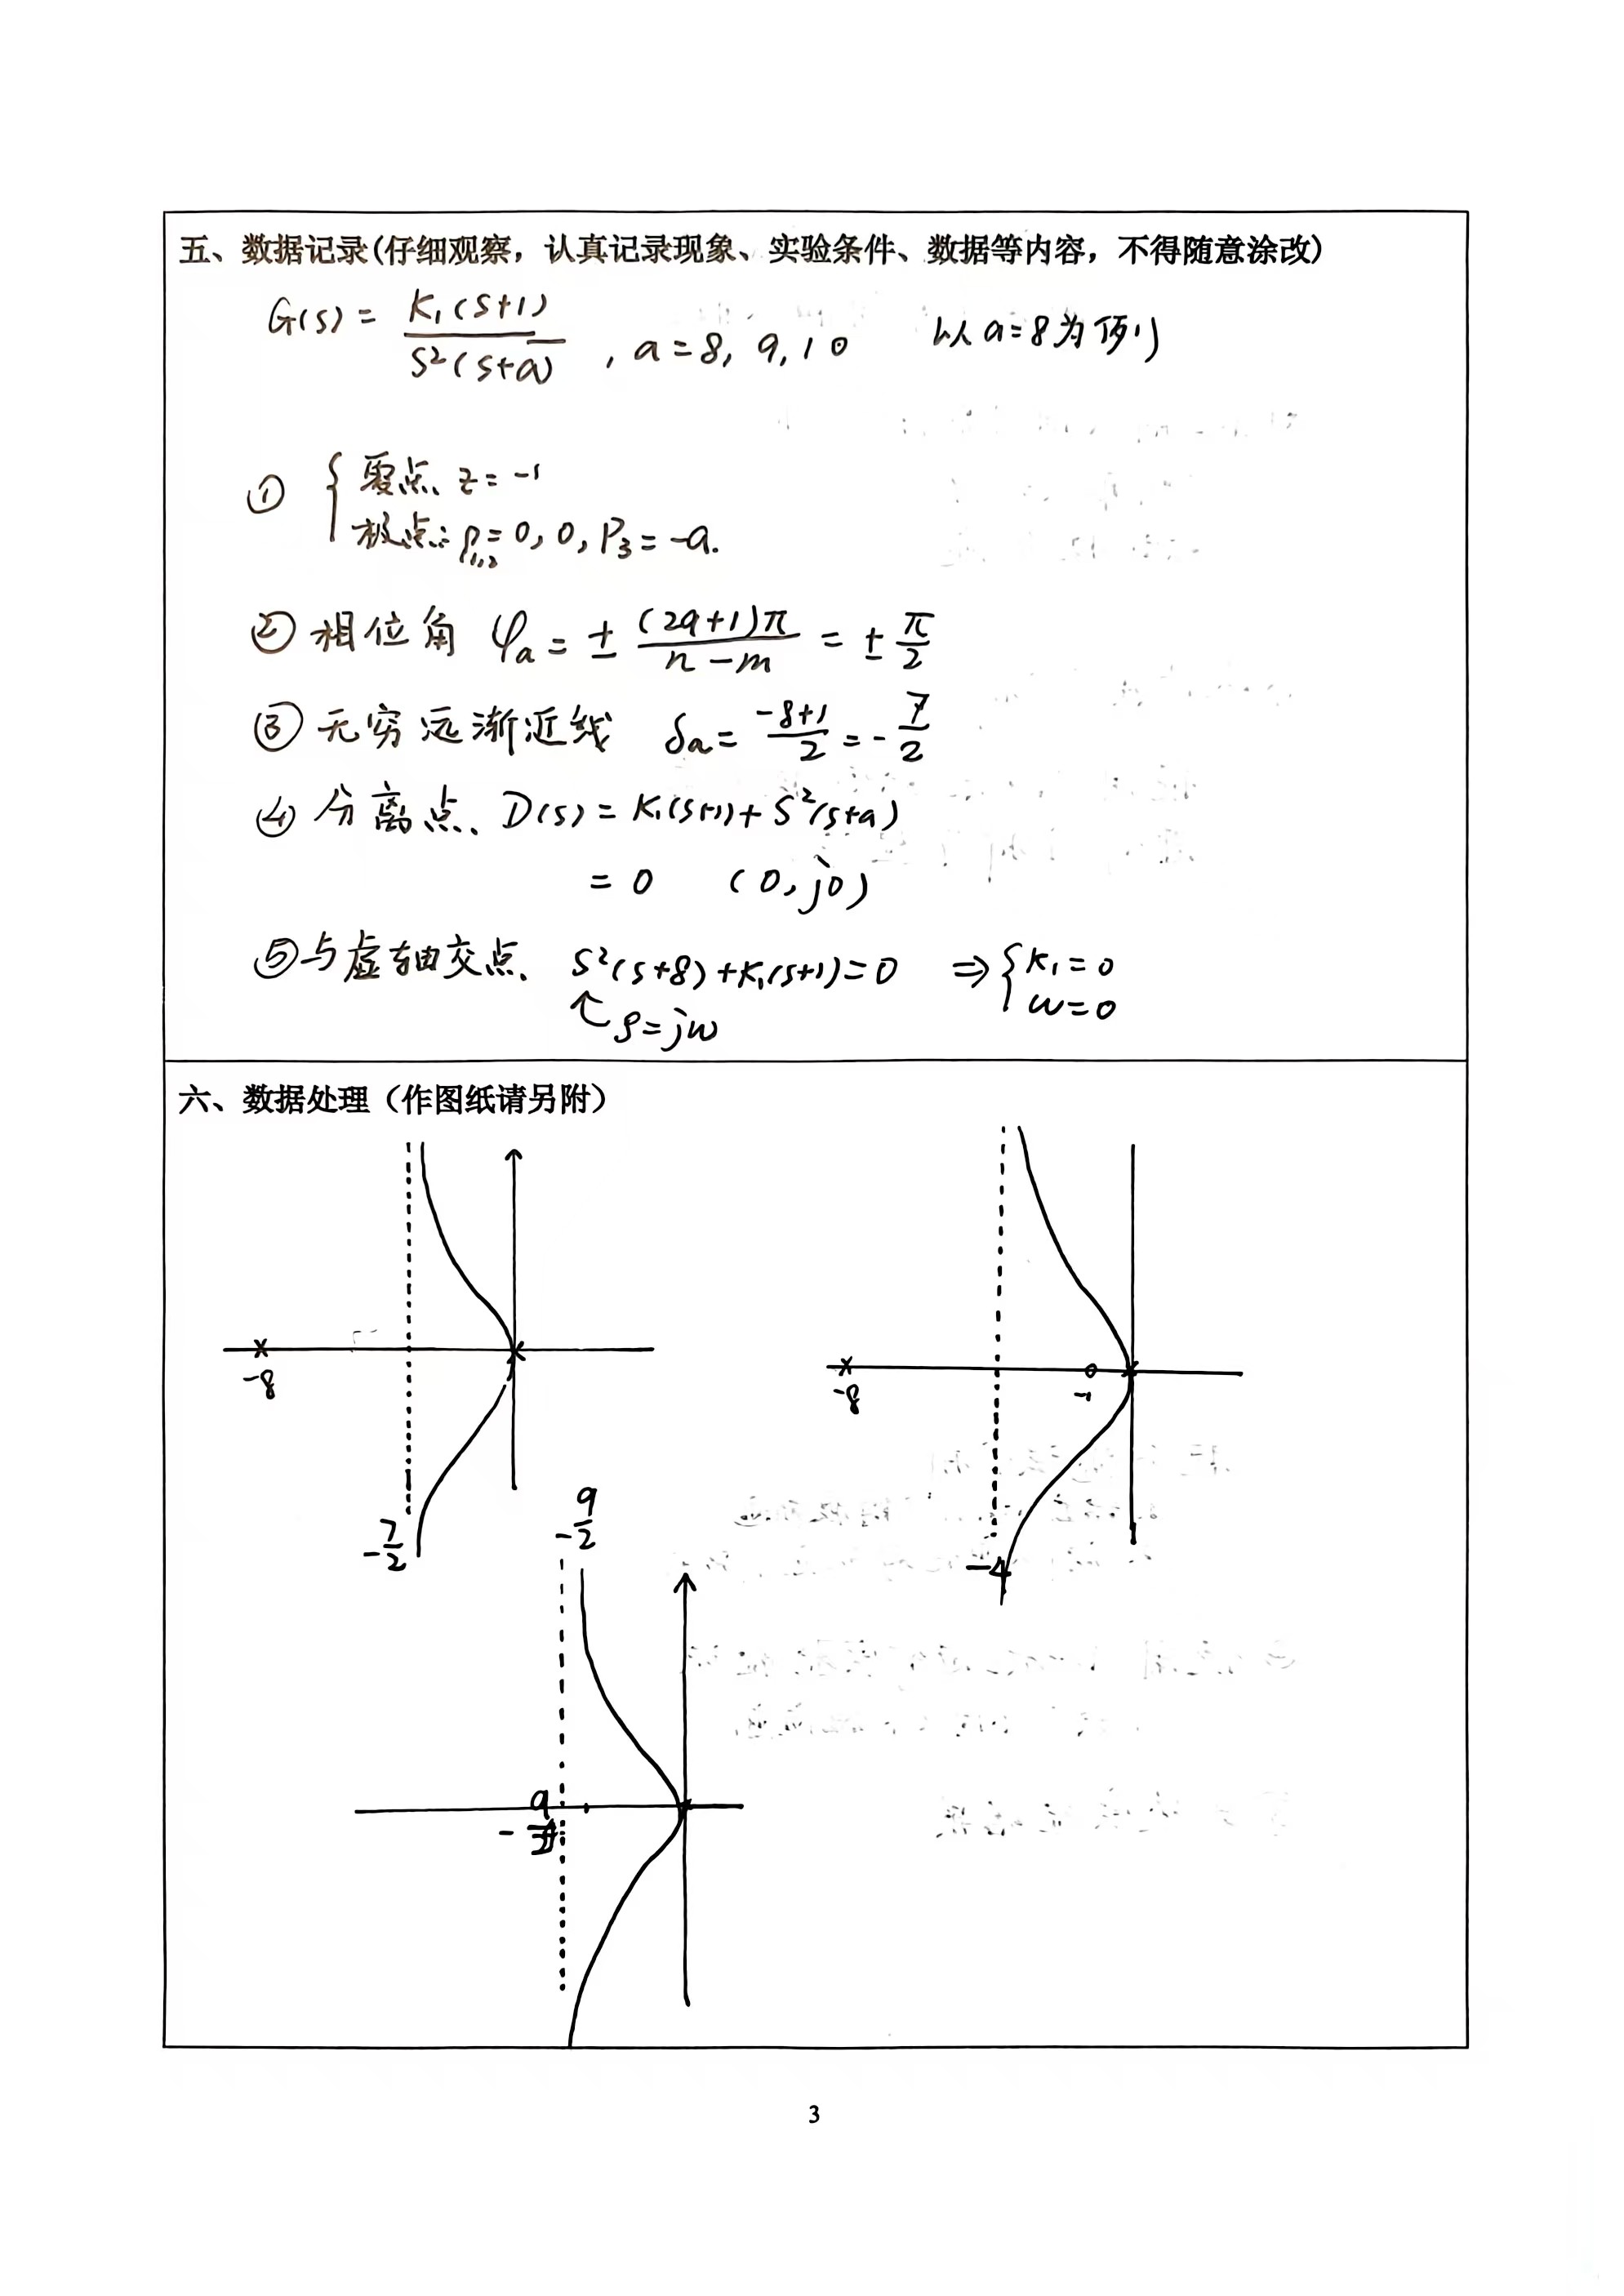 五、数据记录(仔细观察，认真记录现象、实验条件、数据等内容，不得随意涂改)
G(s) = K₁(s+1) / s²(s+a) , a=8, 9, 10 以a=8为例
① { 零点 z=-1
极点: P₁,₂=0, 0, P₃=-a.
② 相位角 φa = ± (2q+1)π / n-m = ± π/2
③ 无穷远渐近线 δa = -8+1 / 2 = - 7/2
④ 分离点、 D(s) = K₁(s+1) + s²(s+a)
= 0 (0, j0)
⑤ 与虚轴交点、 s²(s+8)+K₁(s+1)=0 ⇒ { K₁=0
s=jw w=0
六、数据处理（作图纸请另附）
-8
- 7/2
-8
-1
-4
- 9/2
3